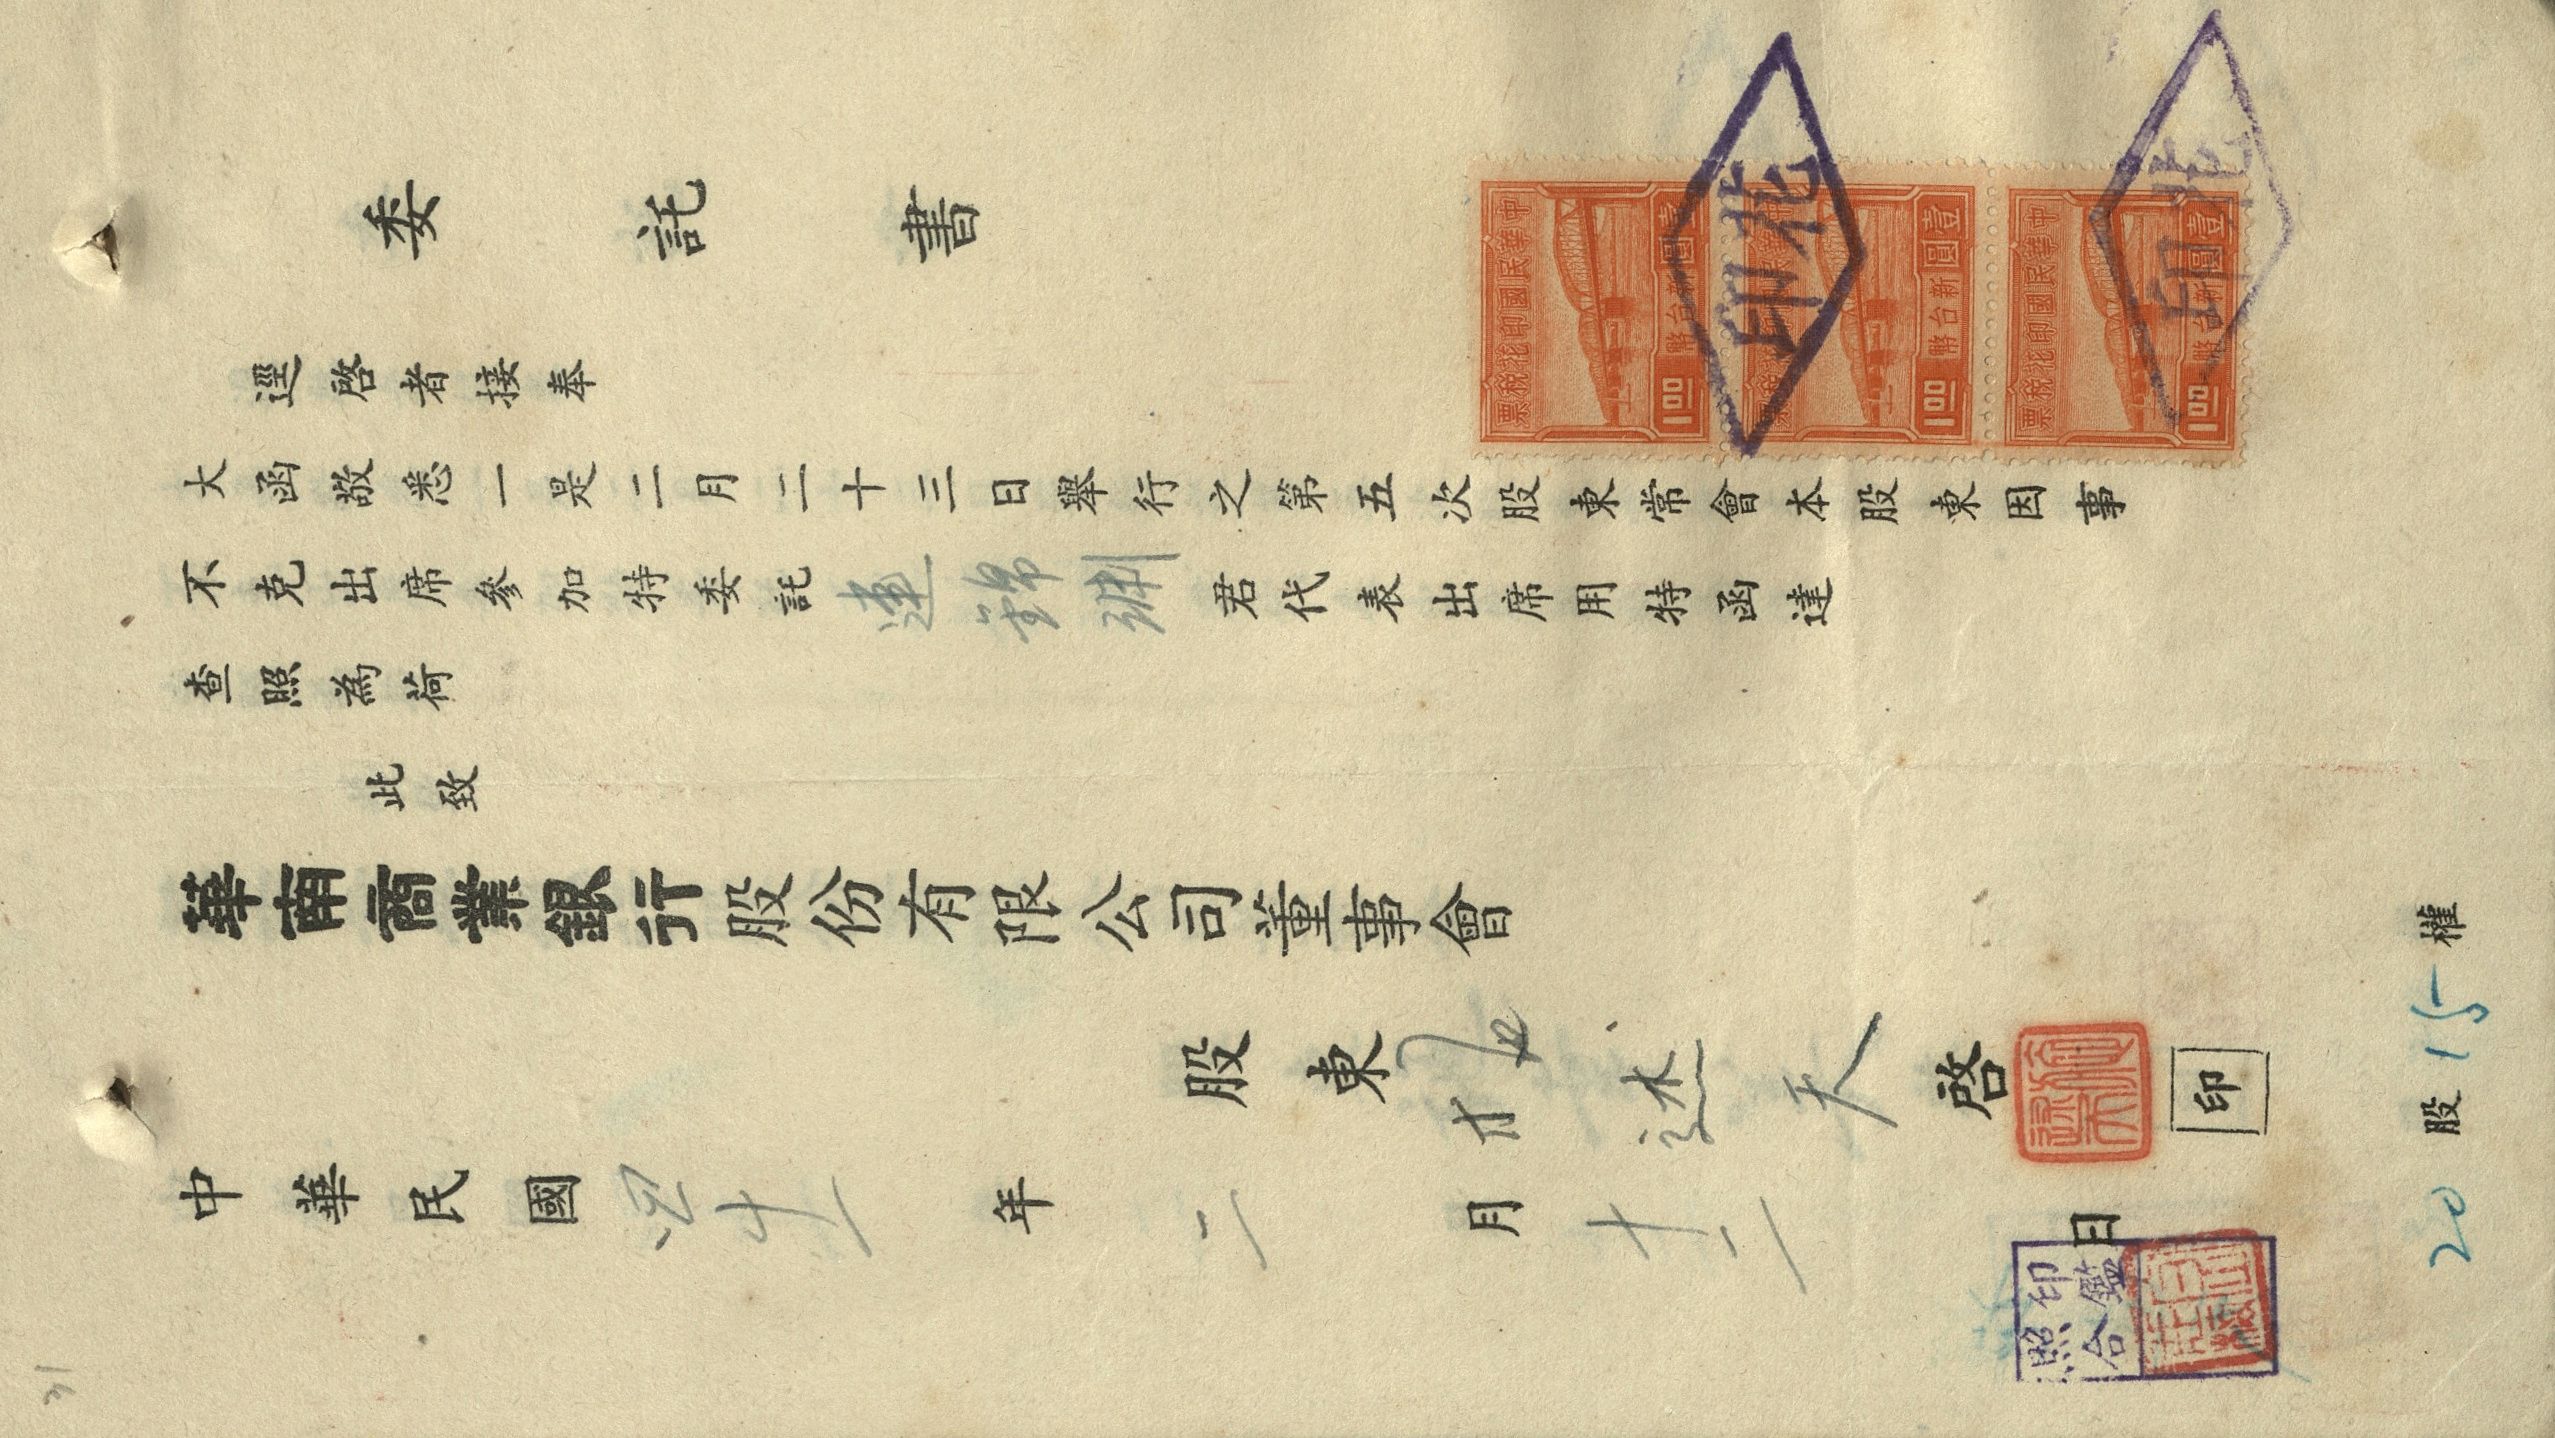 委託書
中華民國印花稅票
壹圓 新台幣 1.00
壹圓 新台幣 1.00
中華民國印花稅票
壹圓 新台幣 1.00
印花
印花
逕啓者接奉
大函敬悉一是二月二十三日舉行之第五次股東常會本股東因事
不克出席參加特委託連錦君代表出席用特函達
查照為荷
此致
華南商業銀行股份有限公司董事會
股東施述天啓 印
中華民國四十一年二月十二日
印鑑照合
20股15權